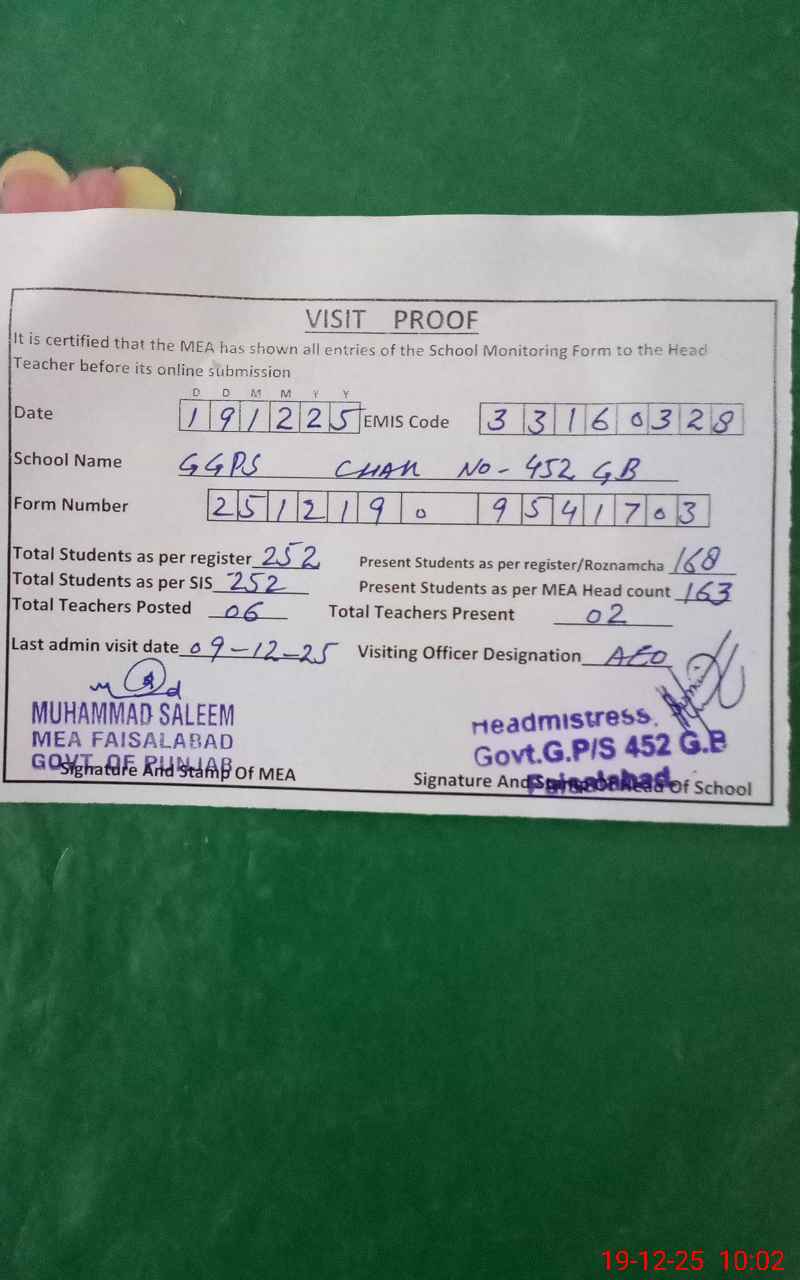 VISIT PROOF
It is certified that the MEA has shown all entries of the School Monitoring Form to the Head
Teacher before its online submission
D D M M Y Y
Date 191225 EMIS Code 33160328
School Name GGPS CHAK NO - 452 GB
Form Number 2512190 9541703
Total Students as per register 252 Present Students as per register/Roznamcha 168
Total Students as per SIS 252 Present Students as per MEA Head count 163
Total Teachers Posted 06 Total Teachers Present 02
Last admin visit date 09-12-25 Visiting Officer Designation AEO
MUHAMMAD SALEEM
MEA FAISALABAD
GOVT. OF PUNJAB
Signature And Stamp Of MEA
Headmistress.
Govt.G.P/S 452 G.B
Faisalabad
Signature And Of School
19-12-25 10:02